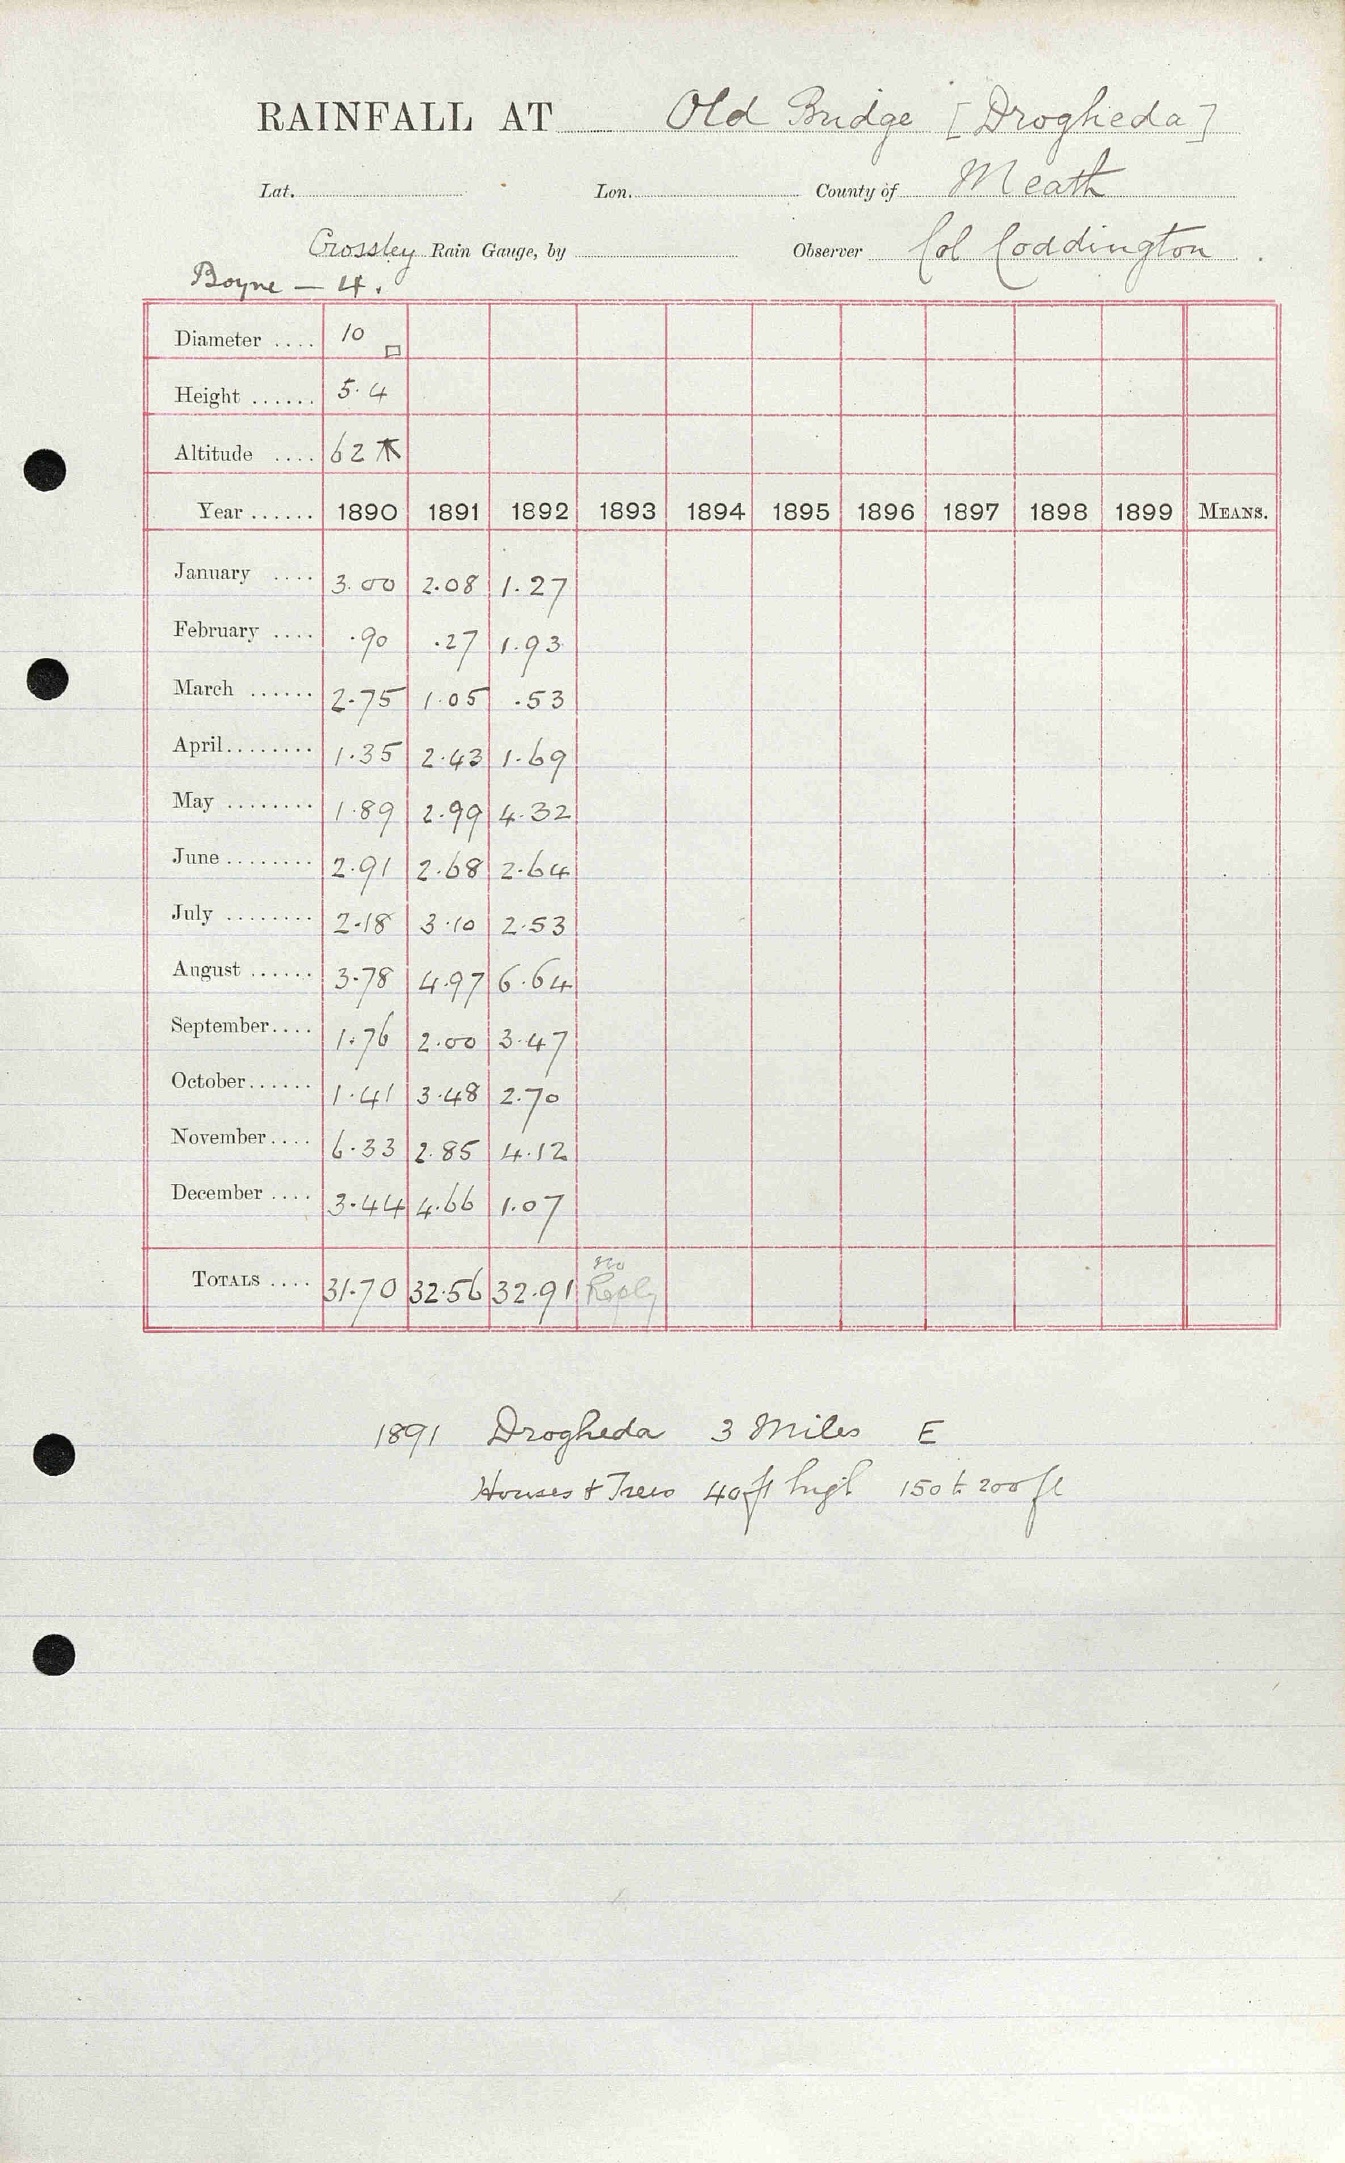 RAINFALL AT Old Bridge [Drogheda]
Lat. Lon. County of Meath
Crossley Rain Gauge, by Observer Col Coddington
Boyne — 4.
Diameter .... 10 □
Height ...... 5.4
Altitude .... 62
Year ...... 1890 1891 1892 1893 1894 1895 1896 1897 1898 1899 MEANS.
January .... 3.00 2.08 1.27
February .... .90 .27 1.93
March ...... 2.75 1.05 .53
April........ 1.35 2.43 1.69
May ........ 1.89 2.99 4.32
June ........ 2.91 2.68 2.64
July ........ 2.18 3.10 2.53
August ...... 3.78 4.97 6.64
September.... 1.76 2.00 3.47
October...... 1.41 3.48 2.70
November.... 6.33 2.85 4.12
December .... 3.44 4.66 1.07
TOTALS .... 31.70 32.56 32.91 no Reply
1891 Drogheda 3 Miles E
Houses & Trees 40ft high 150 to 200 ft